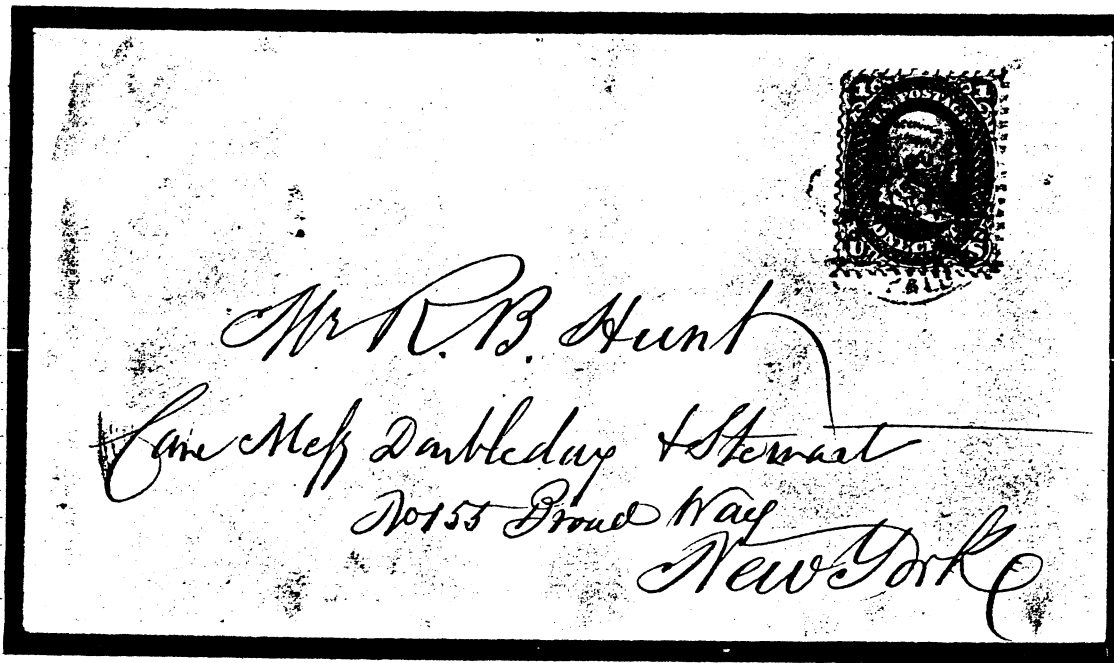 1 1
U.S. POSTAGE
ONE CENT
U S
Mr R. B. Hunt
Care Mess Doubleday & Stewart
No 155 Broad Way
New York